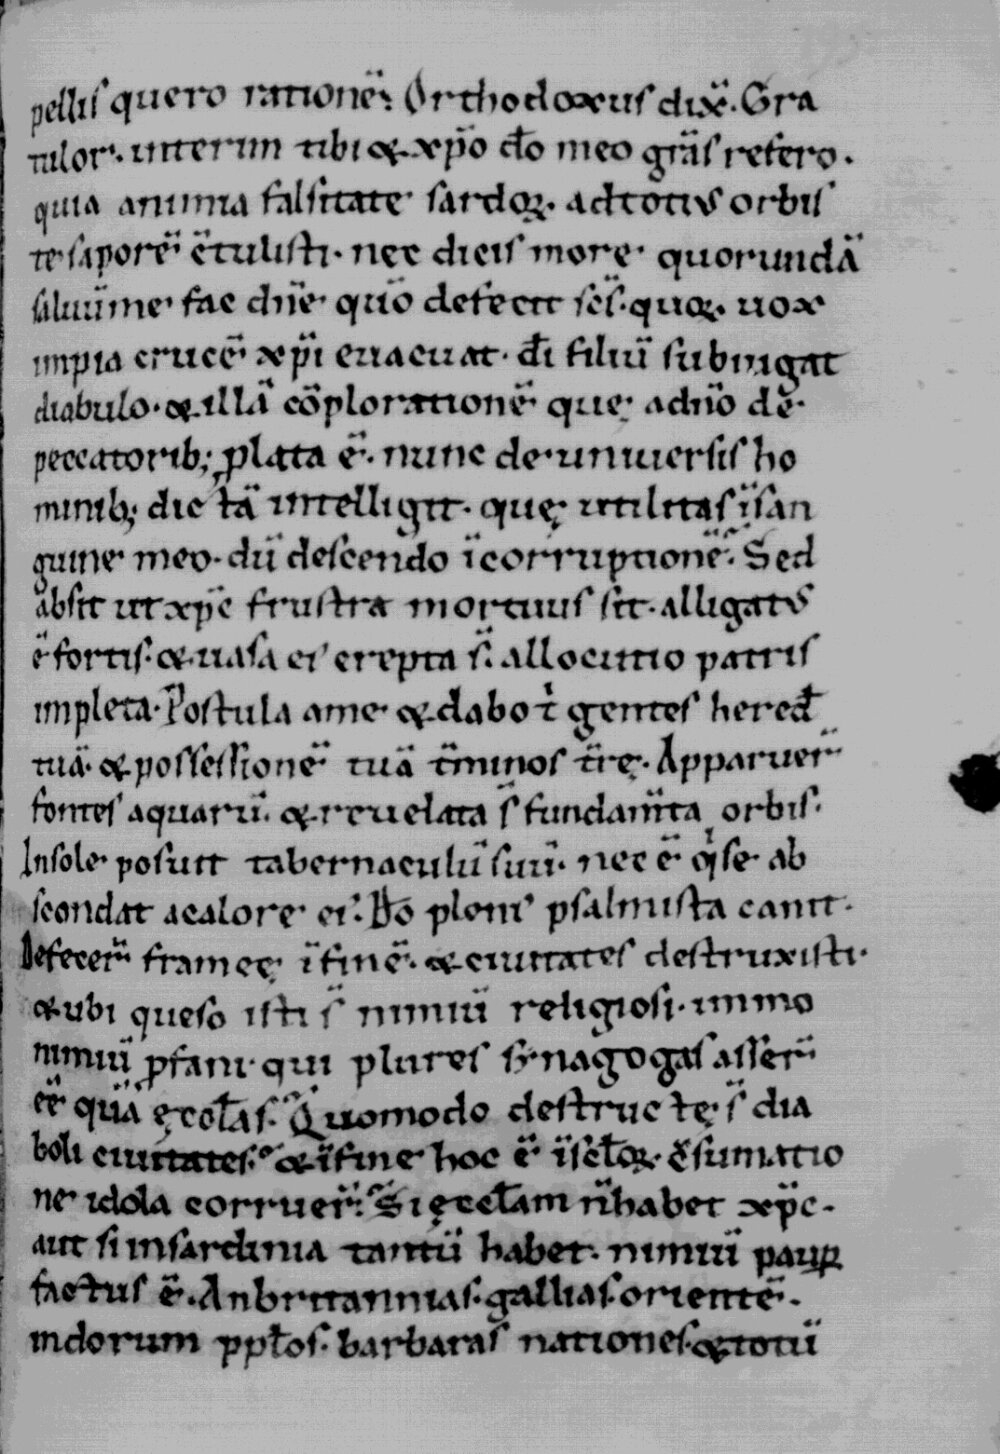 pellis quero rationē. Orthodoxus dix̄. Gra
tulor. interim tibi & xp̄o dō meo grās refero.
quia anima falsitate sardoꝝ. ad totius orbis
te saporē cētulisti. nec dicis more quorundā
saluūme fac dn̄e quō defecit sc̄s. quoꝝ. uox
impia crucē xp̄i euacuat. dī filiū subiugat
diabulo. & illā cōplorationē quę adn̄o de
peccatorib; ꝓlata ē. nunc de uniuersis ho
minib; dictā intelligit. quę utilitas īsan
guine meo. dū descendo īcorruptionē. Sed
absit ut xp̄c frustra mortuus sit. alligatus
ē fortis. & uasa ei' erepta s̄. allocutio patris
impleta. Postula ame & dabo t̄ gentes hered̄
tuā. & possessionē tuā t̄minos t̄rę. Apparuer̄
fontes aquarū. & reuelata s̄ fundam̄ta orbis.
Insole posuit tabernaculū suū. nec ē q̇ se ab
scondat acalore ei'. Dō plen' psalmista canit.
Defecer̄ frameę īfinē. & ciuitates destruxisti.
& ubi queso isti s̄ nimiū religiosi. immo
nimiū ꝓfani. qui plures synagogas asser̄
eē quā ęcct̄as. Quomodo destructę s̄ dia
boli ciuitates. & īfine hoc ē īsct̄oꝝ. c̄sumatio
ne idola corruer̄. Si ęcct̄am n̄habet xp̄c.
aut si insardinia tantū habet. nimiū pauꝑ
factus ē. An brittannias. gallias. orientē.
indorum ppt̄os. barbaras nationes. & totū